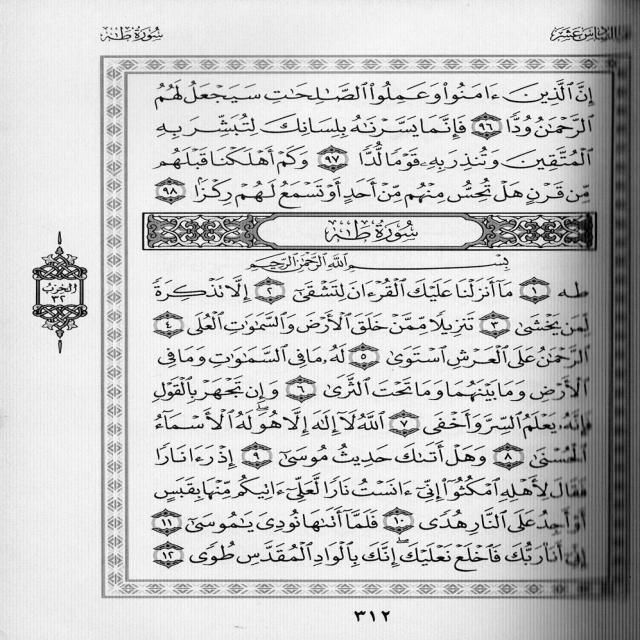 الجزء السادس عشر
سُورَةُ طه
إِنَّ ٱلَّذِينَ ءَامَنُوا۟ وَعَمِلُوا۟ ٱلصَّـٰلِحَـٰتِ سَيَجْعَلُ لَهُمُ
ٱلرَّحْمَـٰنُ وُدًّا ٩٦ فَإِنَّمَا يَسَّرْنَـٰهُ بِلِسَانِكَ لِتُبَشِّرَ بِهِ
ٱلْمُتَّقِينَ وَتُنذِرَ بِهِۦ قَوْمًا لُّدًّا ٩٧ وَكَمْ أَهْلَكْنَا قَبْلَهُم
مِّن قَرْنٍ هَلْ تُحِسُّ مِنْهُم مِّنْ أَحَدٍ أَوْ تَسْمَعُ لَهُمْ رِكْزًۢا ٩٨
سُورَةُ طه
بِسْمِ ٱللَّهِ ٱلرَّحْمَـٰنِ ٱلرَّحِيمِ
طه ١ مَآ أَنزَلْنَا عَلَيْكَ ٱلْقُرْءَانَ لِتَشْقَىٰٓ ٢ إِلَّا تَذْكِرَةً
لِّمَن يَخْشَىٰ ٣ تَنزِيلًا مِّمَّنْ خَلَقَ ٱلْأَرْضَ وَٱلسَّمَـٰوَٰتِ ٱلْعُلَى ٤
ٱلرَّحْمَـٰنُ عَلَى ٱلْعَرْشِ ٱسْتَوَىٰ ٥ لَهُۥ مَا فِى ٱلسَّمَـٰوَٰتِ وَمَا فِى
ٱلْأَرْضِ وَمَا بَيْنَهُمَا وَمَا تَحْتَ ٱلثَّرَىٰ ٦ وَإِن تَجْهَرْ بِٱلْقَوْلِ
فَإِنَّهُۥ يَعْلَمُ ٱلسِّرَّ وَأَخْفَى ٧ ٱللَّهُ لَآ إِلَـٰهَ إِلَّا هُوَ ۖ لَهُ ٱلْأَسْمَآءُ
ٱلْحُسْنَىٰ ٨ وَهَلْ أَتَىٰكَ حَدِيثُ مُوسَىٰٓ ٩ إِذْ رَءَا نَارًا
فَقَالَ لِأَهْلِهِ ٱمْكُثُوٓا۟ إِنِّىٓ ءَانَسْتُ نَارًا لَّعَلِّىٓ ءَاتِيكُم مِّنْهَا بِقَبَسٍ
أَوْ أَجِدُ عَلَى ٱلنَّارِ هُدًى ١٠ فَلَمَّآ أَتَىٰهَا نُودِىَ يَـٰمُوسَىٰٓ ١١
إِنِّىٓ أَنَا۠ رَبُّكَ فَٱخْلَعْ نَعْلَيْكَ ۖ إِنَّكَ بِٱلْوَادِ ٱلْمُقَدَّسِ طُوًى ١٢
الحزب
٣٢
٣١٢